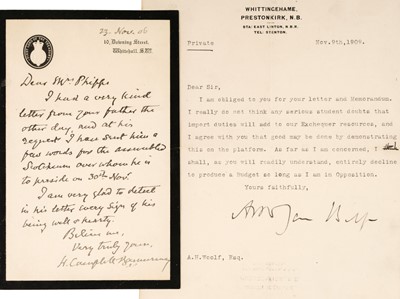 23. Nov. 06
10, Downing Street,
Whitehall, S.W.
Dear Mrs Phipps
I had a very kind
letter from your father the
other day, and at his
request I have sent him a
few words for the assembled
Scotchmen over whom he is
to preside on 30th Nov.
I am very glad to detect
in his letter every sign of his
being well & hearty.
Believe me,
Very truly yours,
H. Campbell-Bannerman
WHITTINGEHAME,
PRESTONKIRK, N.B.
STA: EAST LINTON, N.B.R.
TEL: STENTON.
Private
Nov. 9th, 1909.
Dear Sir,
I am obliged to you for your letter and Memorandum.
I really do not think any serious student doubts that
import duties will add to our Exchequer resources, and
I agree with you that good may be done by demonstrating
this on the platform. As far as I am concerned, I
shall, as you will readily understand, entirely decline
to produce a Budget as long as I am in Opposition.
Yours faithfully,
A.E.Woolf, Esq.